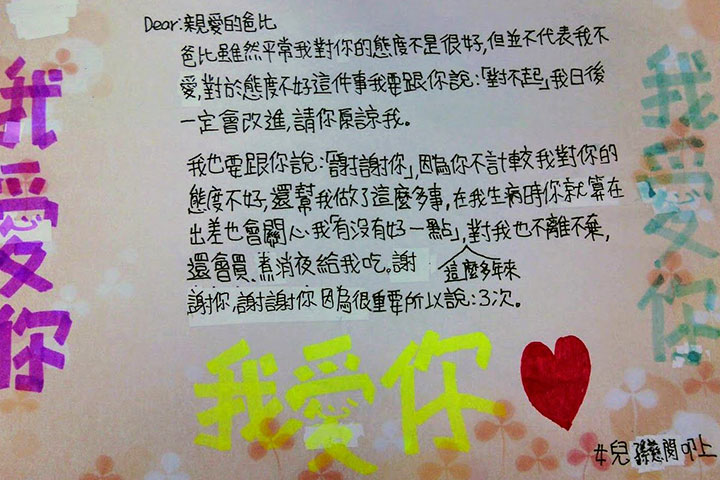 Dear:親愛的爸比
爸比雖然平常我對你的態度不是很好,但並不代表我不
愛,對於態度不好這件事我要跟你說:「對不起」我日後
一定會改進,請你原諒我。
我也要跟你說:「謝謝你」,因為你不計較我對你的
態度不好,還幫我做了這麼多事,在我生病時你就算在
出差也會關心我「有沒有好一點」,對我也不離不棄,
這麼多年來
還會買、煮消夜給我吃。謝
謝你,謝謝你因為很重要所以說:3次。
我愛你
我愛你
我愛你
#兒 上